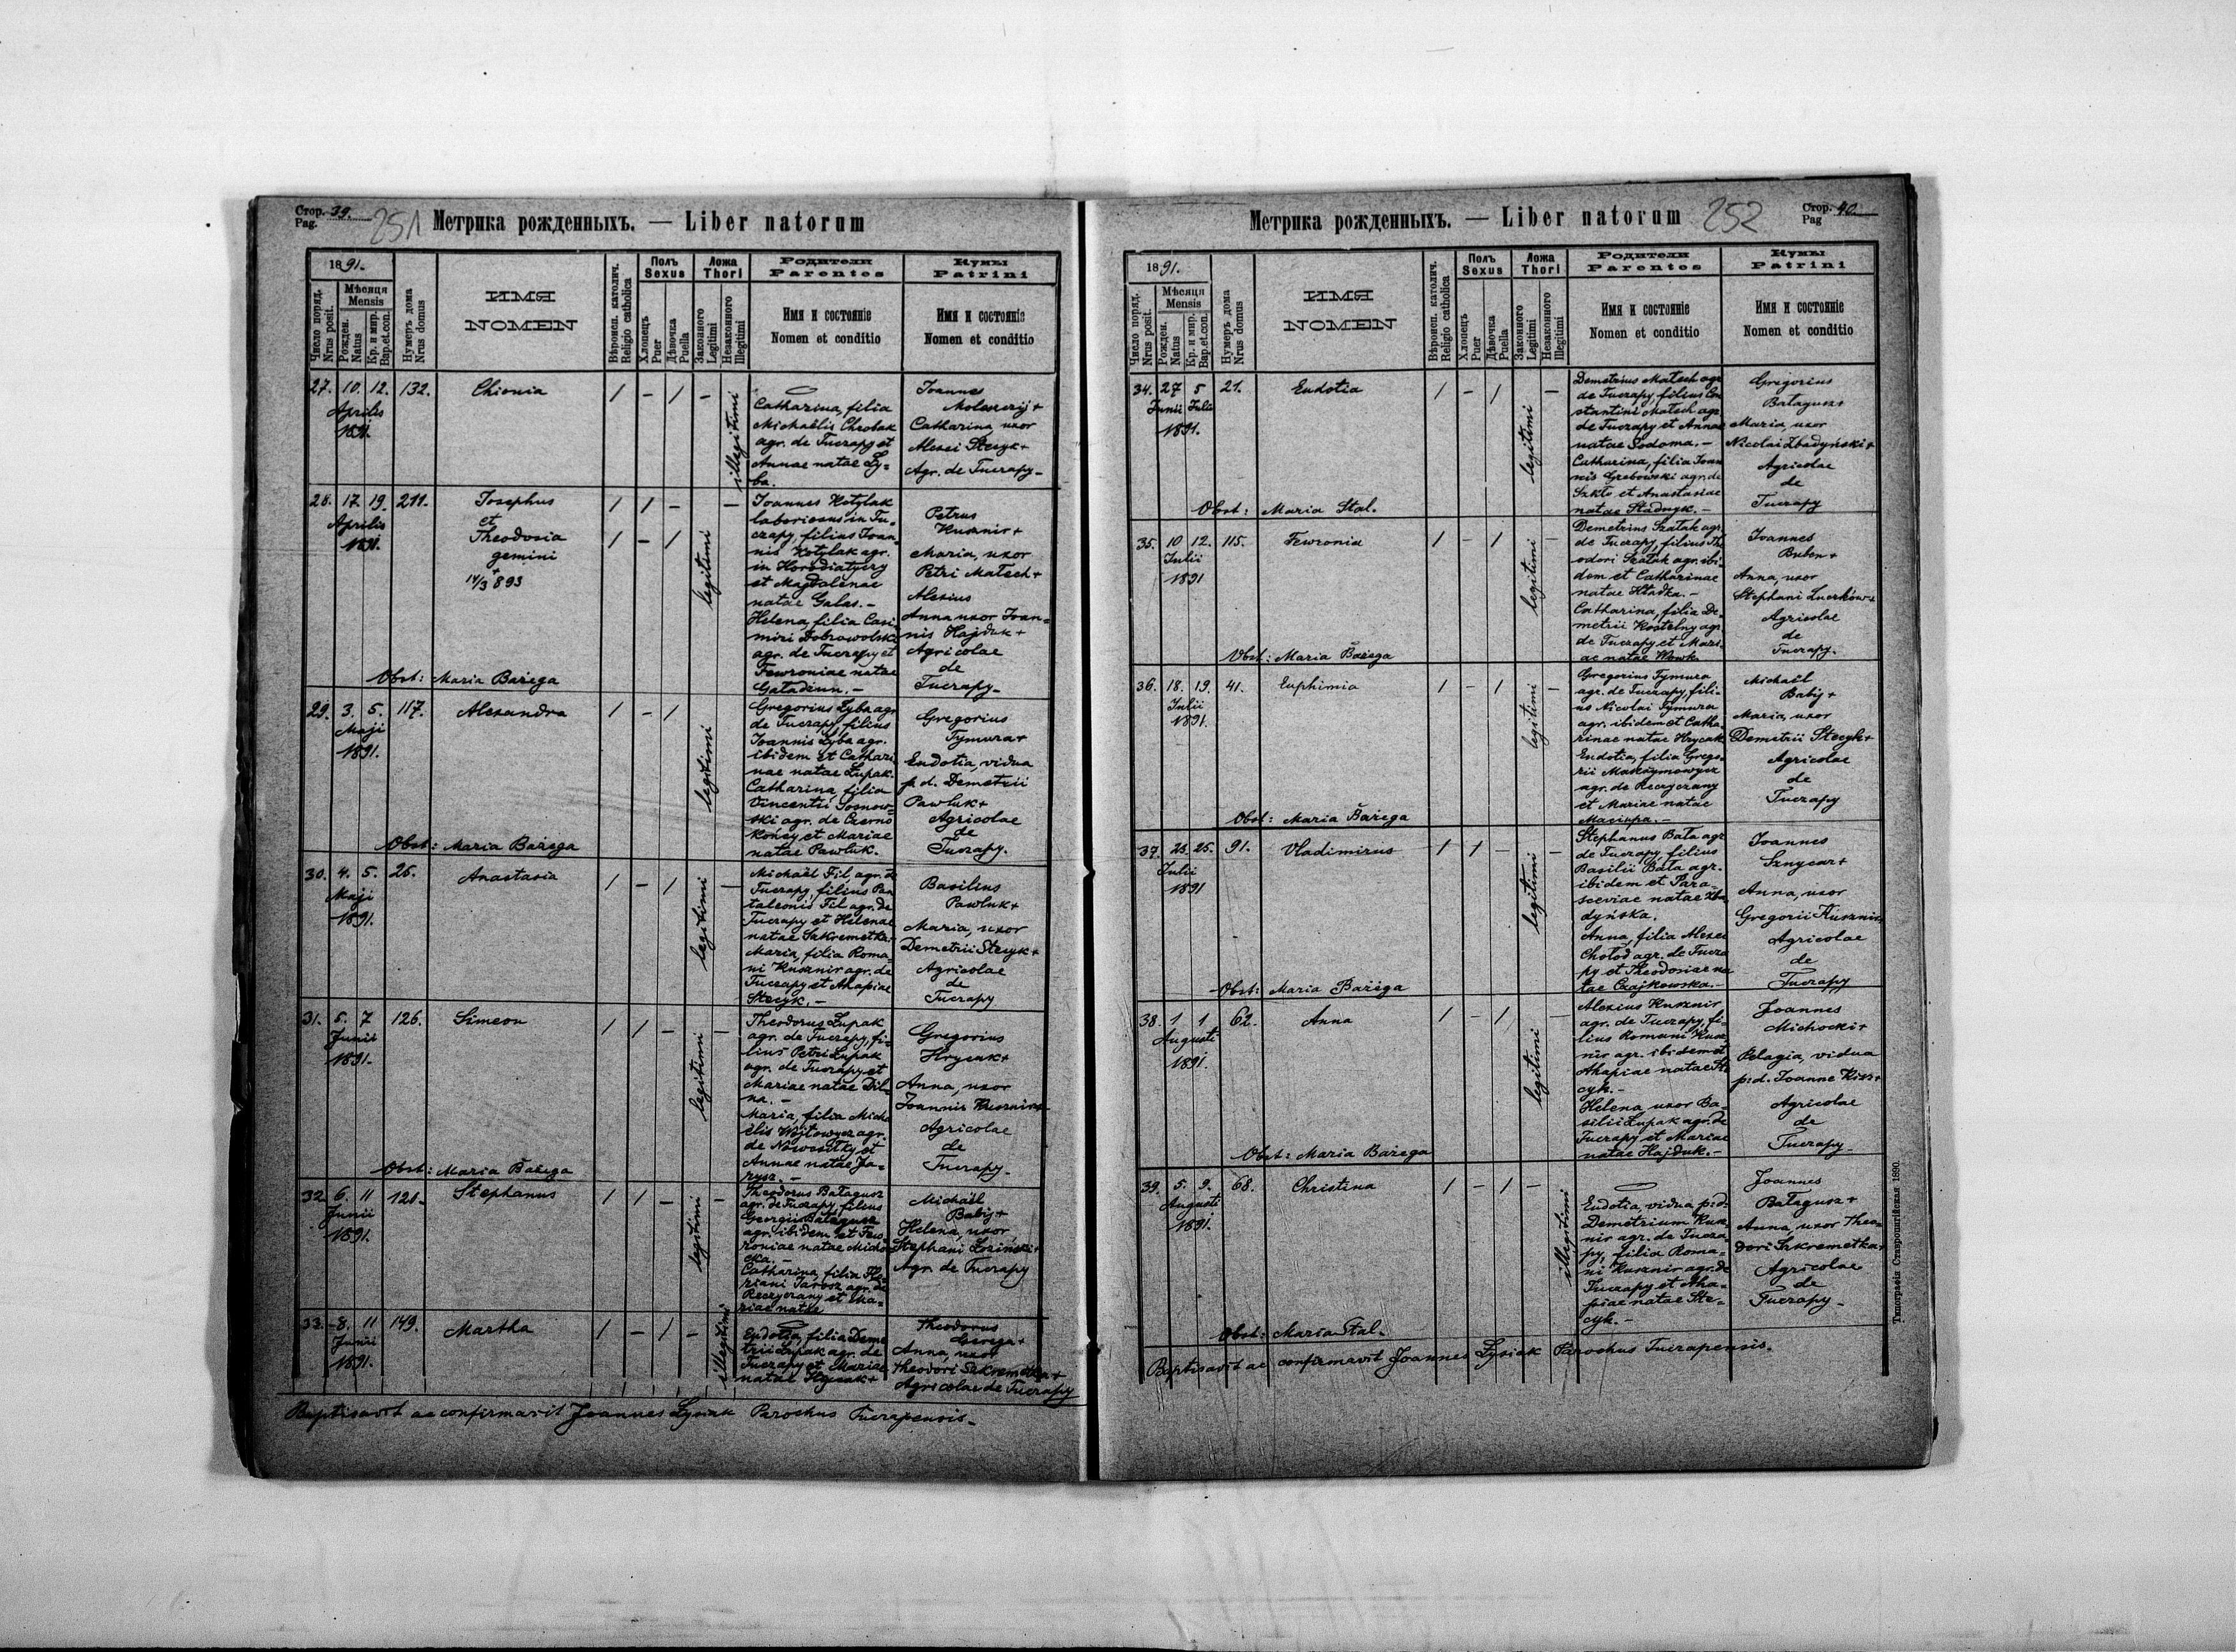 Стор. 39.
Pag.
251
Метрика рожденныхъ. — Liber natorum
1891.
Число поряд.
Nrus posit.
Мѣсяця
Mensis
Рожден.
Natus
Кр. и мир.
Bap.et.con.
Нумеръ дома
Nrus domus
ИМЯ
NOMEN
Вѣроисп. католич.
Religio catholica
Полъ
Sexus
Хлопецъ
Puer
Дѣвочка
Puella
Ложа
Thori
Законного
Legitimi
Незаконного
Illegitimi
Родители
Parentes
Имя и состояніе
Nomen et conditio
Кумы
Patrini
Имя и состояніе
Nomen et conditio
27. 10. 12. 132. Chionia / - / - illegitimi
Aprilis
1891.
Catharina, filia
Michaëlis Chrobak
agr. de Tuczapy et
Annae natae Ły-
ba.
Joannes
Catharina, uxor
Alexei Stecyk +
Agr. de Tuczapy -
28. 17. 19. 211. Josephus / / - legitimi -
Aprilis
1891.
et
Theodosia / - /
gemini
+
14/3 893
Joannes Kotylak
in Tu-
czapy, filius Joan-
nis Kotylak agr.
in Horodiatyczy
et Magdalenae
natae Galas. -
Helena, filia Casi-
miri Dobrowolski
agr. de Tuczapy et
Fewroniae natae
Petrus
Kusznir +
Maria, uxor
Petri Matech +
Alexius
Anna uxor Joan-
nis Hajduk +
Agricolae
de
Tuczapy -
Obst: Maria Barega
29. 3. 5. 117. Alexandra / - / legitimi
Maji
1891.
Gregorius Łyba agr.
de Tuczapy, filius
Joannis Łyba agr.
ibidem et Cathari-
nae natae Łupak.
Catharina, filia
Vincentii Sosnow-
ski agr. de
et Mariae
natae Pawluk.
Gregorius
Tymura +
Eudotia, vidua
p. d. Demetrii
Pawluk +
Agricolae
de
Tuczapy.
Obst: Maria Barega
30. 4. 5. 26. Anastasia / - / legitimi -
Maji
1891.
Michaël Fil agr. de
Tuczapy, filius Pan-
taleonis Fil agr. de
Tuczapy et Helenae
natae Szkremetka.
Maria, filia Roma-
ni Kusznir agr. de
Tuczapy et Ahapiae
Stecyk. -
Basilius
Pawluk +
Maria, uxor
Demetrii Stecyk +
Agricolae
de
Tuczapy
31. 5. 7 126. Simeon / / - legitimi -
Junii
1891.
Theodorus Łupak
agr. de Tuczapy, fi-
lius Petri Łupak
agr. de Tuczapy et
Mariae natae Dil-
na. -
Maria, filia Micha-
ëlis Wójtowycz agr.
de Nowosiłky et
Annae natae Ja-
rysz. -
Gregorius
Hrycak +
Anna, uxor
Joannis Kusznir +
Agricolae
de
Tuczapy -
Obst: Maria Barega
32. 6. 11 121. Stephanus / / - legitimi -
Junii
1891.
Theodorus Batagusz
agr. de Tuczapy, filius
Georgii Batagusz
agr. ibidem et Few-
roniae natae Micho-
cka. -
Catharina, filia Flo-
riani Jarosz agr. de
Reczyczany et Ma-
riae natae
Michaël
Babij +
Helena, uxor
Stephani Łoziński +
Agr. de Tuczapy
33. 8. 11 149. Martha / - / - illegitimi
Junii
1891.
Eudotia, filia Deme-
trii Łupak agr. de
Tuczapy et Mariae
natae Hrycak +
Theodorus
Gerega +
Anna, uxor
Theodori Szkremetka +
Agricolae de Tuczapy
Baptisavit ac confirmavit Joannes Łysiak Parochus Tuczapensis -
Метрика рожденныхъ. — Liber natorum
252
Стор. 40.
Pag
1891.
Число поряд.
Nrus posit.
Мѣсяця
Mensis
Рожден.
Natus
Кр. и мир.
Bap.et.con.
Нумеръ дома
Nrus domus
ИМЯ
NOMEN
Вѣроисп. католич.
Religio catholica
Полъ
Sexus
Хлопецъ
Puer
Дѣвочка
Puella
Ложа
Thori
Законного
Legitimi
Незаконного
Illegitimi
Родители
Parentes
Имя и состояніе
Nomen et conditio
Кумы
Patrini
Имя и состояніе
Nomen et conditio
34. 27 5 21. Eudotia / - / legitimi -
Junii Julii
1891.
Demetrius Matech agr.
de Tuczapy, filius Con-
stantini Matech agr.
de Tuczapy et Annae
natae Sodoma. -
Catharina, filia Joan-
nis Grabowski agr. de
Szkło et Anastasiae
natae Stadnyk. -
Gregorius
Batagusz +
Maria, uxor
Nicolai Zbadyński +
Agricolae
de
Tuczapy
Obst: Maria Stal.
35. 10 12. 115. Fewronia / - / legitimi -
Julii
1891
Demetrius Szatak agr.
de Tuczapy, filius The-
odori Szatak agr. ibi-
dem et Catharinae
natae Hładka. -
Catharina, filia De-
metrii Kostelny agr.
de Tuczapy et Mari-
ae natae Wowk.
Joannes
Buben +
Anna, uxor
Stephani
Agricolae
de
Tuczapy.
Obst: Maria Barega
36. 18. 19. 41. Euphimia / - / legitimi -
Julii
1891.
Gregorius Tymura
agr. de Tuczapy, fili-
us Nicolai Tymura
agr. ibidem et Catha-
rinae natae Hrycak
Eudotia, filia Grego-
rii Maksymowycz
agr. de Reczyczany
et Mariae natae
Maciupa. -
Michaël
Babij +
Maria, uxor
Demetrii Stecyk +
Agricolae
de
Tuczapy
Obst: Maria Barega
37. 25. 91. Vladimirus / / - legitimi -
Julii
1891
Stephanus Bata agr.
de Tuczapy, filius
Basilii Bata agr.
ibidem et Para-
sceviae natae Zba-
dyńska.
Anna, filia Alexei
Chołod agr. de Tucza-
py et Theodosiae na-
tae Czajkowska. -
Joannes
Sznycar +
Anna, uxor
Gregorii Kusznir
Agricolae
de
Tuczapy
Obst: Maria Barega
38. 1 1 62. Anna / - / legitimi -
Augusti
1891.
Alexius Kusznir
agr. de Tuczapy, fi-
lius Romani Kusz-
nir agr. ibidem et
Ahapiae natae Ste-
cyk. -
Helena uxor Ba-
silii Łupak agr. de
Tuczapy et Mariae
natae Hajduk. -
Joannes
Michocki +
Pelagia, vidua
p. d. Joanne
Agricolae
de
Tuczapy -
Obst: Maria Barega
39. 5. 9. 68. Christina / - / - illegitimi
Augusti
1891.
Eudotia, vidua p. d.
Demetrium Kusz-
nir agr. de Tucza-
py, filia Roma-
ni Kusznir agr. de
Tuczapy et Aha-
piae natae Ste-
cyk. -
Joannes
Batagusz +
Anna, uxor Theo-
dori Szkremetka +
Agricolae
de
Tuczapy -
Obst: Maria Stal.
Baptisavit ac confirmavit Joannes Łysiak Parochus Tuczapensis.
Типографія Ставропигійская 1890.